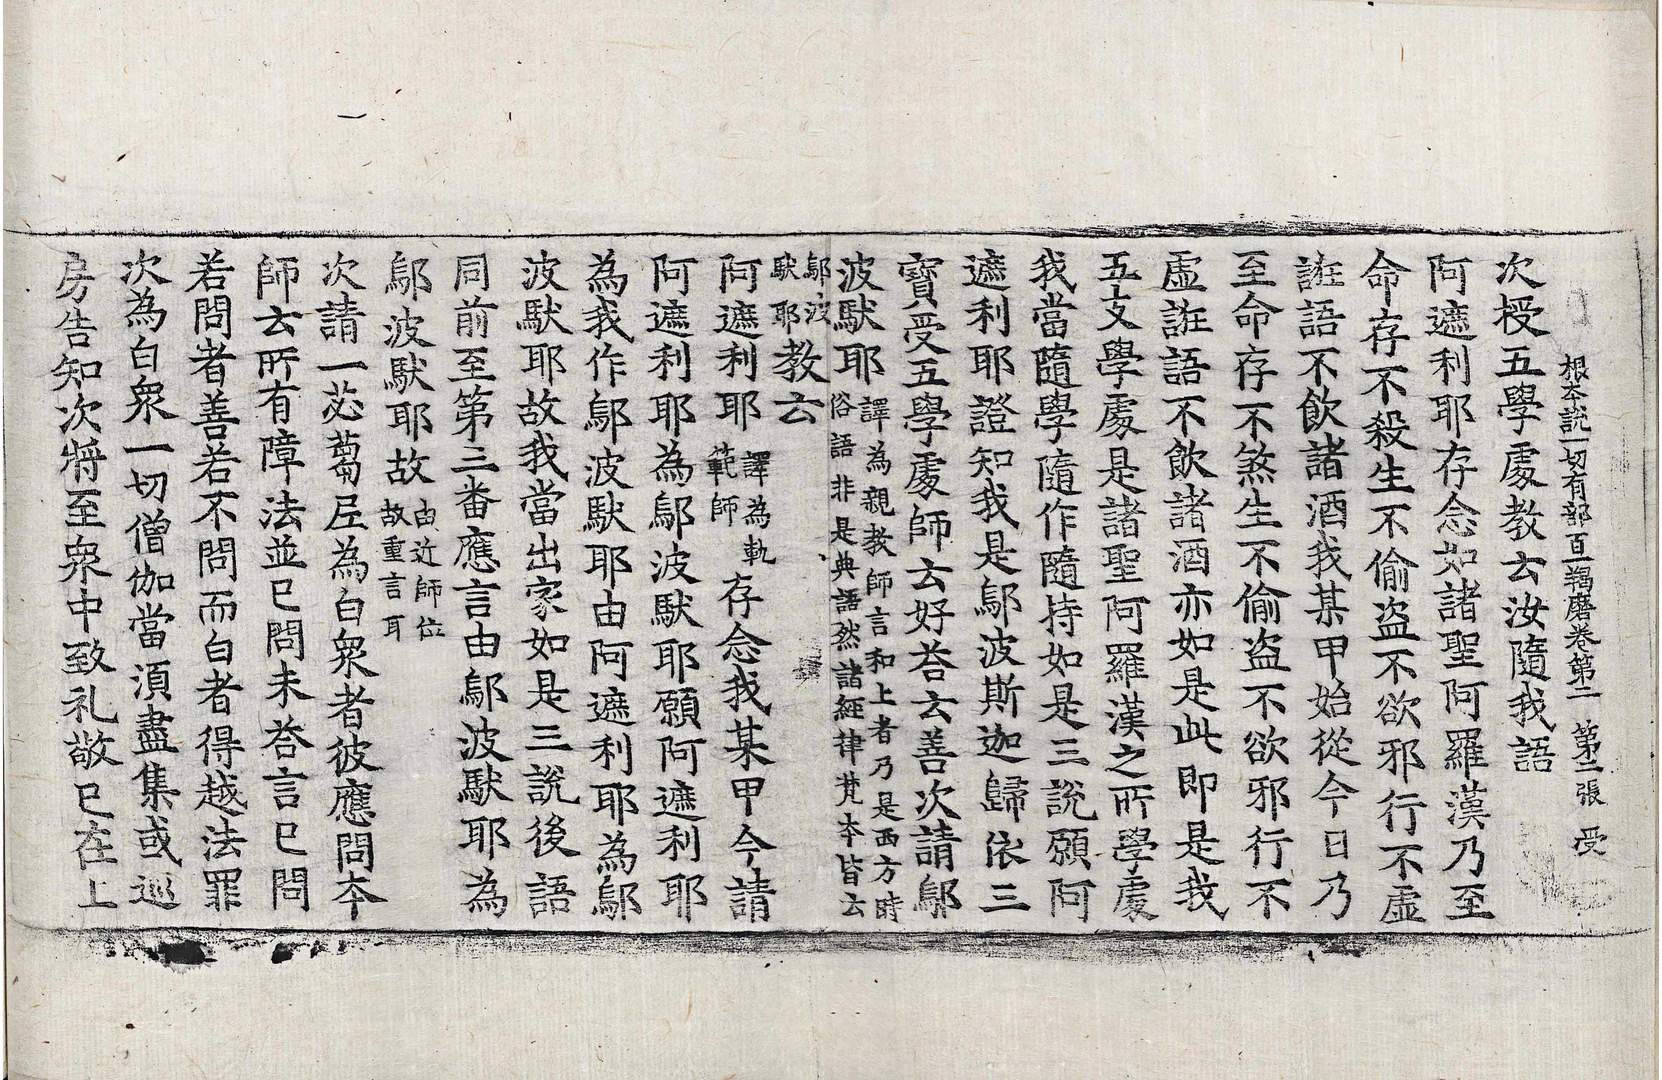 根本說一切有部百一羯磨卷第二　第二張　受
次授五學處教云汝隨我語
阿遮利耶存念如諸聖阿羅漢乃至
命存不殺生不偷盗不欲邪行不虛
誑語不飲諸酒我某甲始從今日乃
至命存不煞生不偷盗不欲邪行不
虛誑語不飲諸酒亦如是此即是我
五支學處是諸聖阿羅漢之所學處
我當隨學隨作隨持如是三說願阿
遮利耶證知我是鄔波斯迦歸依三
寶受五學處師云好荅云善次請鄔
波馱耶譯為親教師言和上者乃是西方時
俗語非是典語然諸經律梵本皆云
鄔波
馱耶教云
阿遮利耶譯為軌
範師存念我某甲今請
阿遮利耶為鄔波馱耶願阿遮利耶
為我作鄔波馱耶由阿遮利耶為鄔
波馱耶故我當出家如是三說後語
同前至第三番應言由鄔波馱耶為
鄔波馱耶故由近師位
故重言耳
次請一苾蒭𡰱為白衆者彼應問本
師云所有障法並已問未荅言已問
若問者善若不問而白者得越法罪
次為白衆一切僧伽當湏盡集或巡
房告知次將至衆中致礼敬已在上